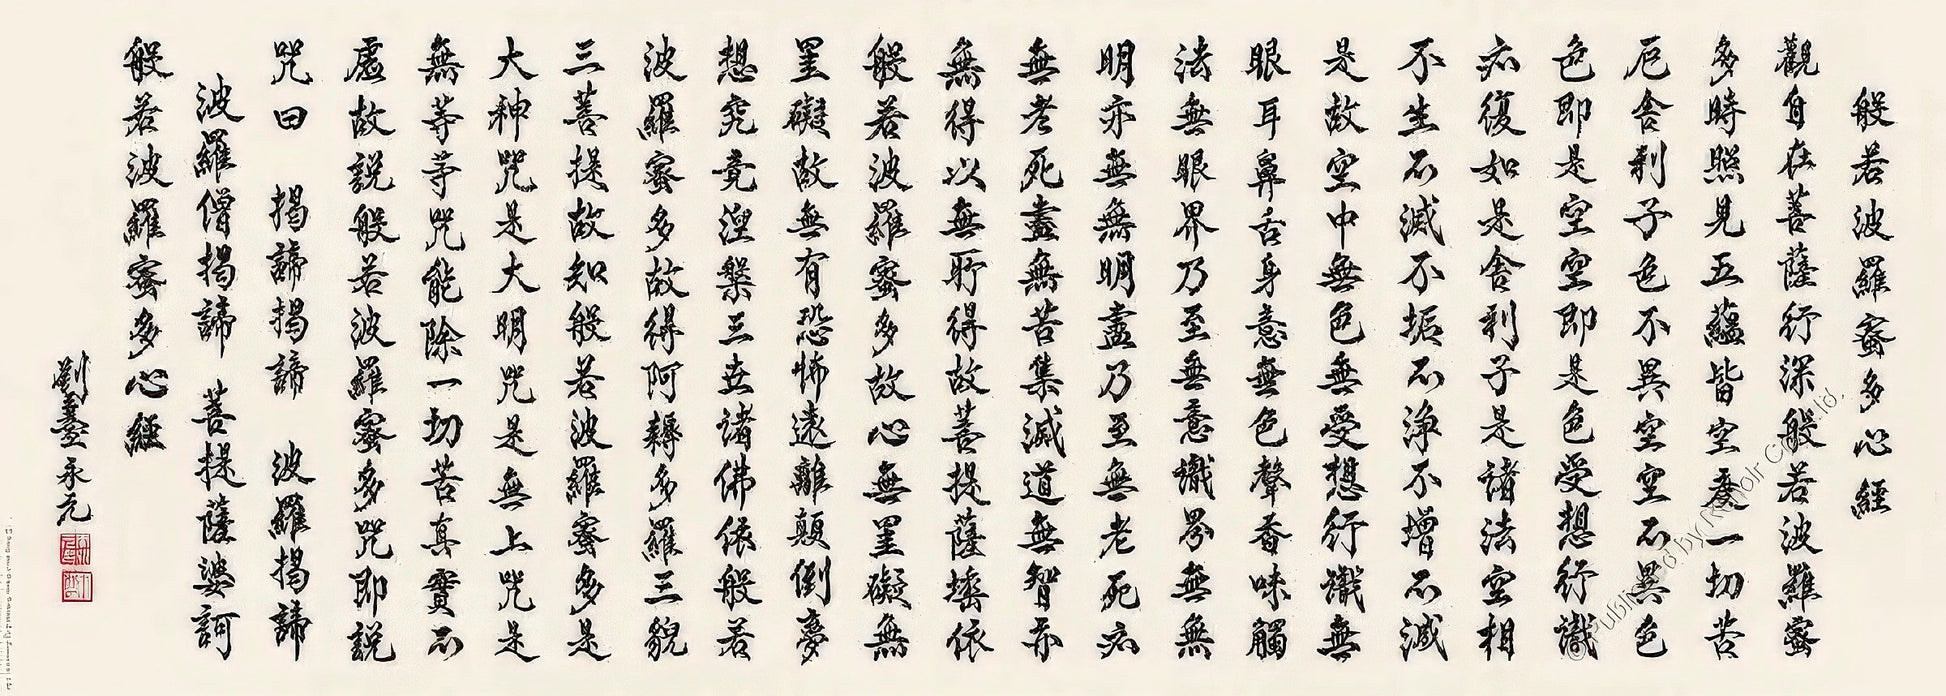 般若波羅蜜多心經
觀自在菩薩行深般若波羅蜜
多時照見五蘊皆空度一切苦
厄舍利子色不異空空不異色
色即是空空即是色受想行識
亦復如是舍利子是諸法空相
不生不滅不垢不淨不增不減
是故空中無色無受想行識無
眼耳鼻舌身意無色聲香味觸
法無眼界乃至無意識界無無
明亦無無明盡乃至無老死亦
無老死盡無苦集滅道無智亦
無得以無所得故菩提薩埵依
般若波羅蜜多故心無罣礙無
罣礙故無有恐怖遠離顛倒夢
想究竟涅槃三世諸佛依般若
波羅蜜多故得阿耨多羅三藐
三菩提故知般若波羅蜜多是
大神咒是大明咒是無上咒是
無等等咒能除一切苦真實不
虛故說般若波羅蜜多咒即說
咒曰 揭諦揭諦 波羅揭諦
波羅僧揭諦 菩提薩婆訶
般若波羅蜜多心經
永元
© Published by